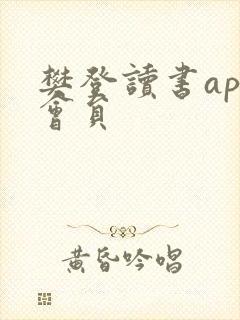 樊登讀書ap
會員
黃昏吟唱